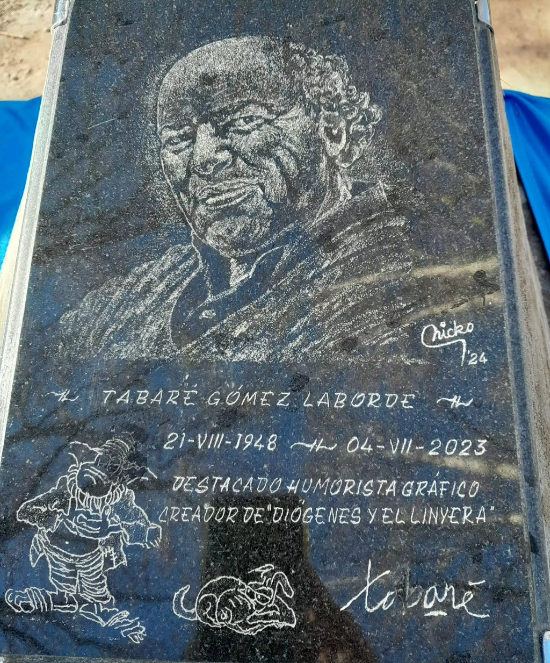 Chicko
'24
TABARÉ GÓMEZ LABORDE
21-VIII-1948 04-VII-2023
DESTACADO HUMORISTA GRÁFICO
CREADOR DE "DIÓGENES Y EL LINYERA"
tabaré